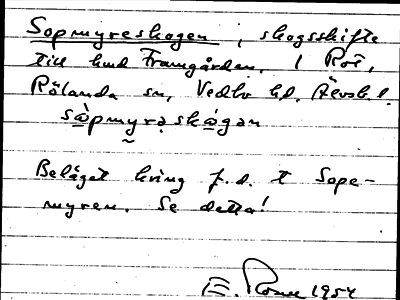 Sopmyreskogen, skogsskifte
till hmd Framgården, 1 Röe,
Rölanda sn, Vedbo hd, Älvsb. l.
sàpmyraskògan
Beläget kring f.d. t Sope-
myren. Se detta!
E. 1954